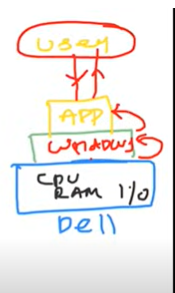 User
APP
WINDOWS
CPU
RAM I/O
Dell